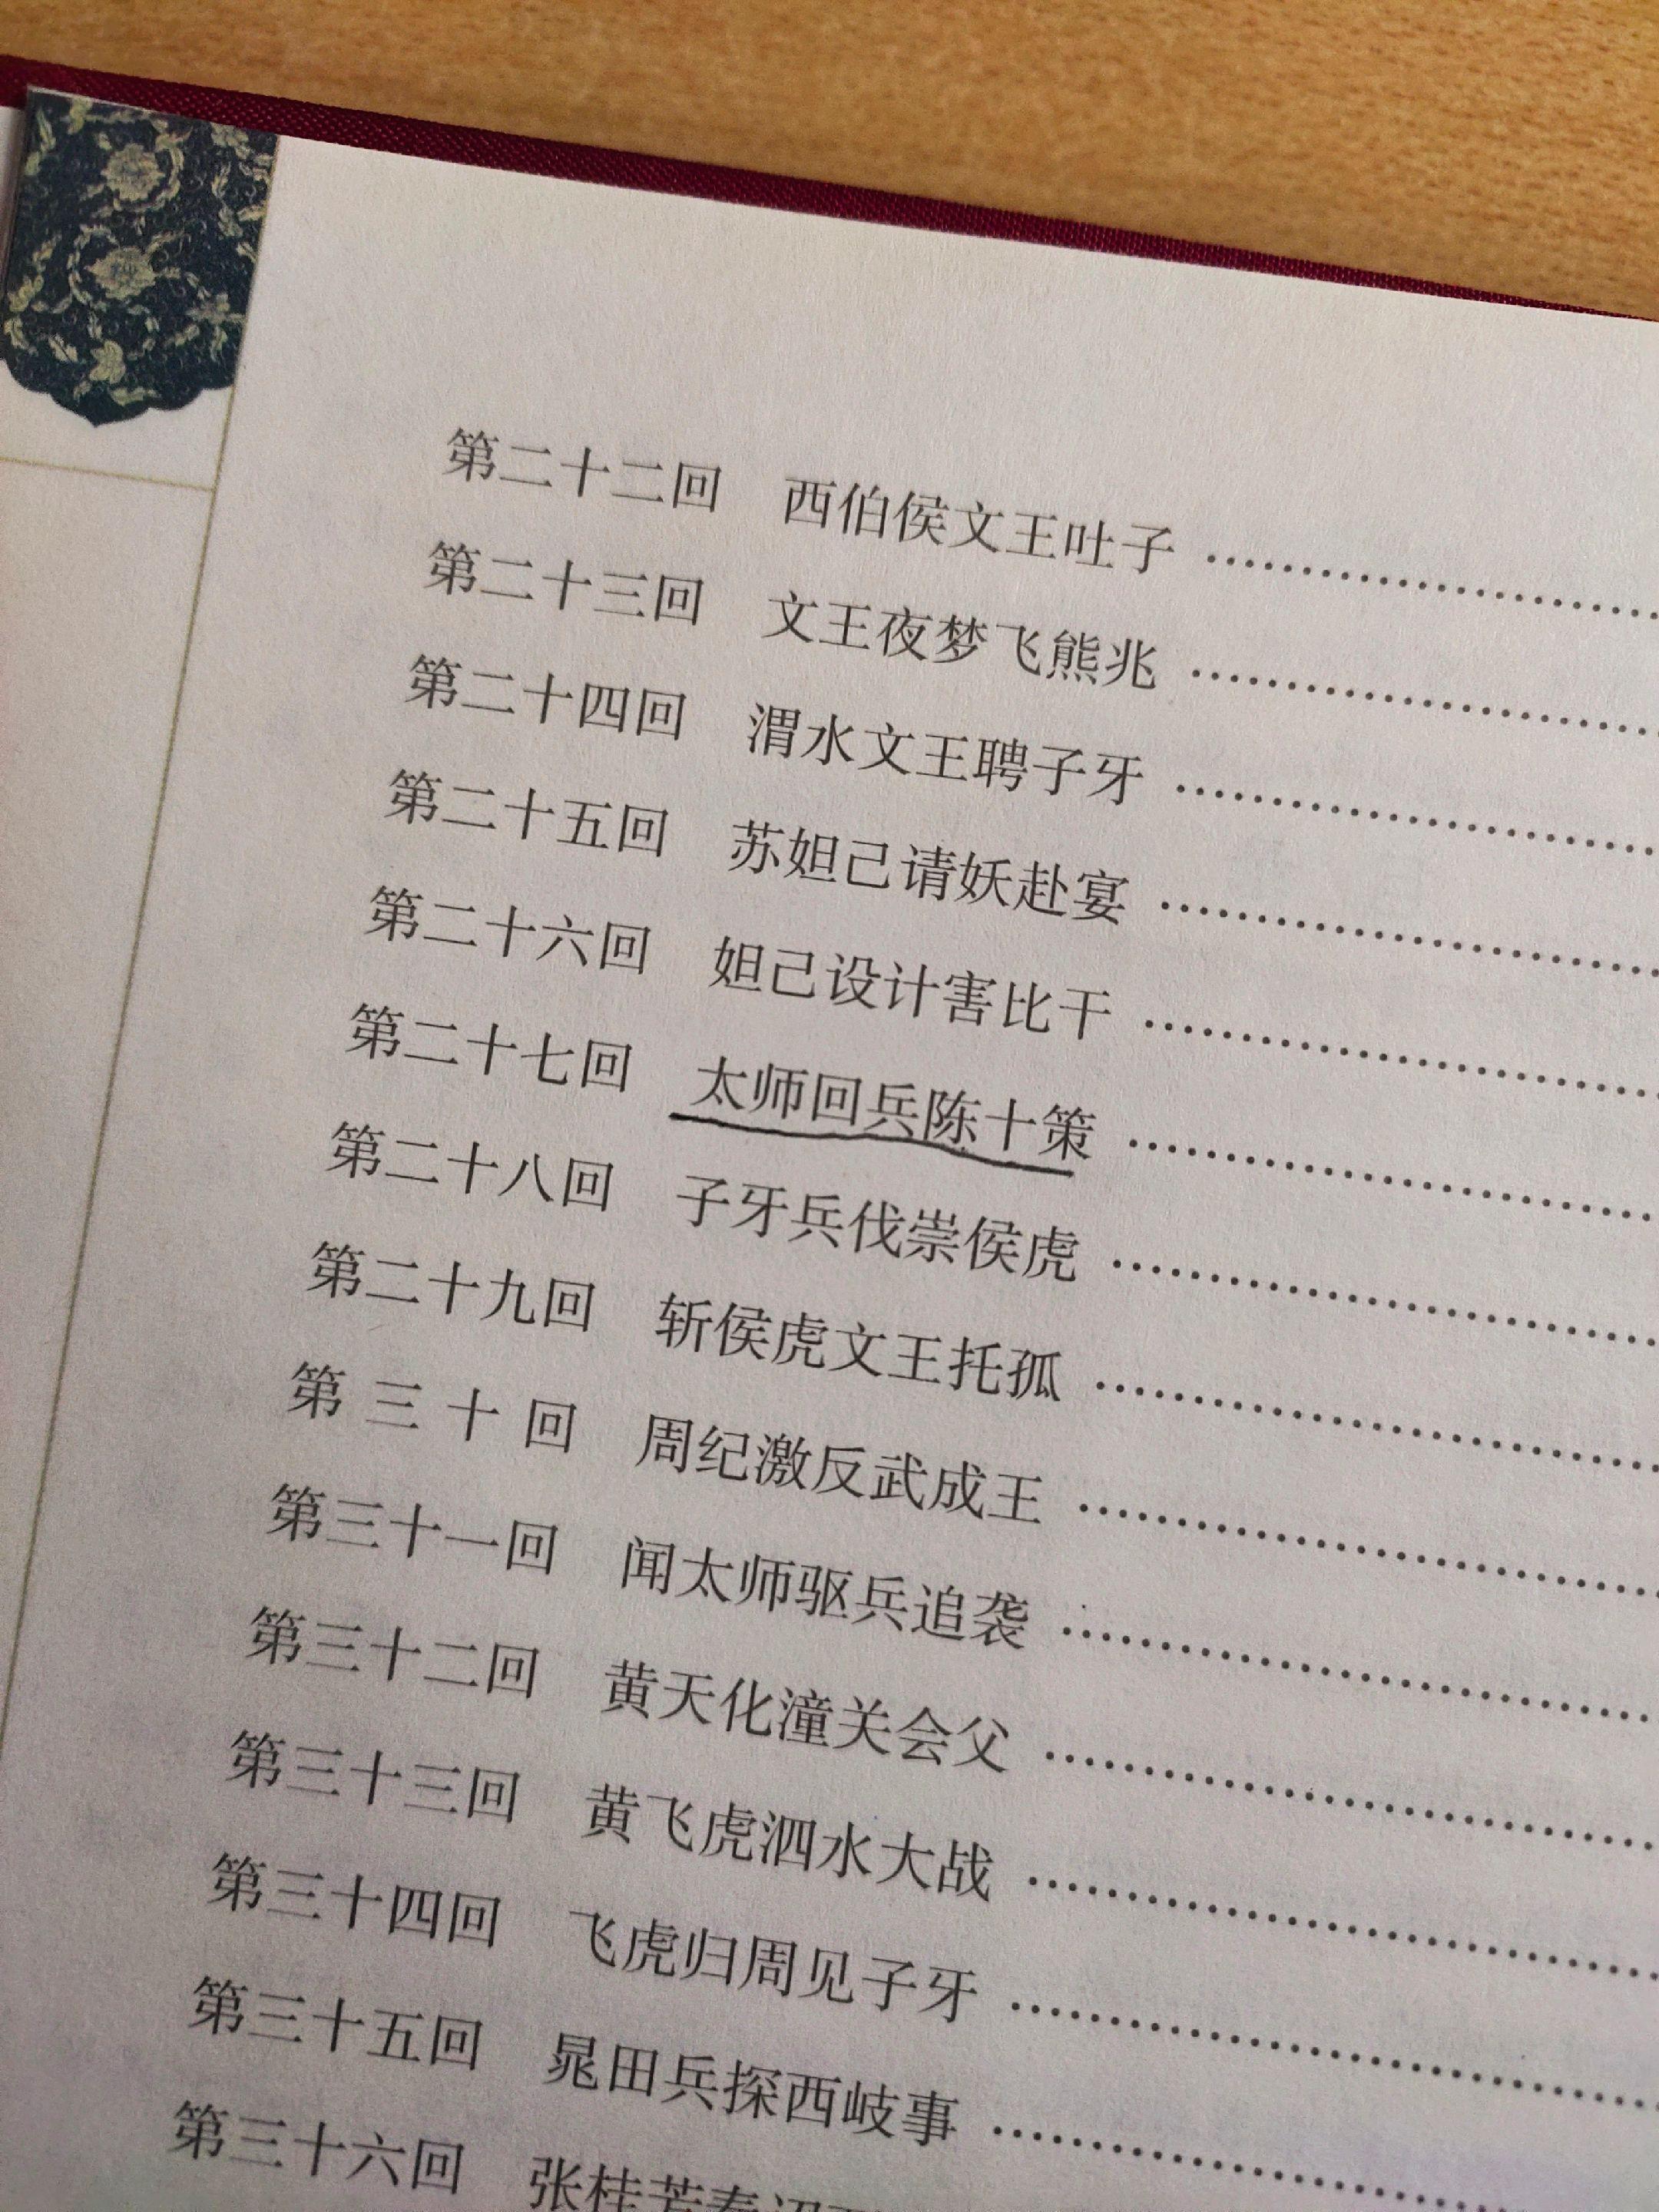 第二十二回 西伯侯文王吐子 ……………
第二十三回 文王夜梦飞熊兆 ……………
第二十四回 渭水文王聘子牙 ……………
第二十五回 苏妲己请妖赴宴 ……………
第二十六回 妲己设计害比干 ……………
第二十七回 太师回兵陈十策 ……………
第二十八回 子牙兵伐崇侯虎 ……………
第二十九回 斩侯虎文王托孤 ……………
第三十回 周纪激反武成王 ……………
第三十一回 闻太师驱兵追袭 ……………
第三十二回 黄天化潼关会父 ……………
第三十三回 黄飞虎泗水大战 ……………
第三十四回 飞虎归周见子牙 ……………
第三十五回 晁田兵探西岐事 ……………
第三十六回 张桂芳奉诏